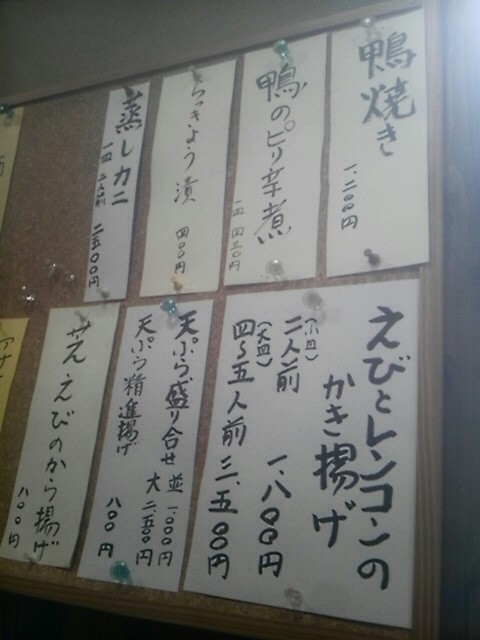 鴨焼き
一、二〇〇円
鴨のピリ辛煮
一皿 四三〇円
らっきょう漬
四〇〇円
蒸しカニ
一皿 二人前 二五〇〇円
えびとレンコンの
かき揚げ
(小皿)
二人前 一、八〇〇円
(大皿)
四~五人前 三、五〇〇円
天ぷら盛り合せ 並 一、〇〇〇円
大 二、五〇〇円
天ぷら精進揚げ 八〇〇円
えびのから揚げ
八〇〇円